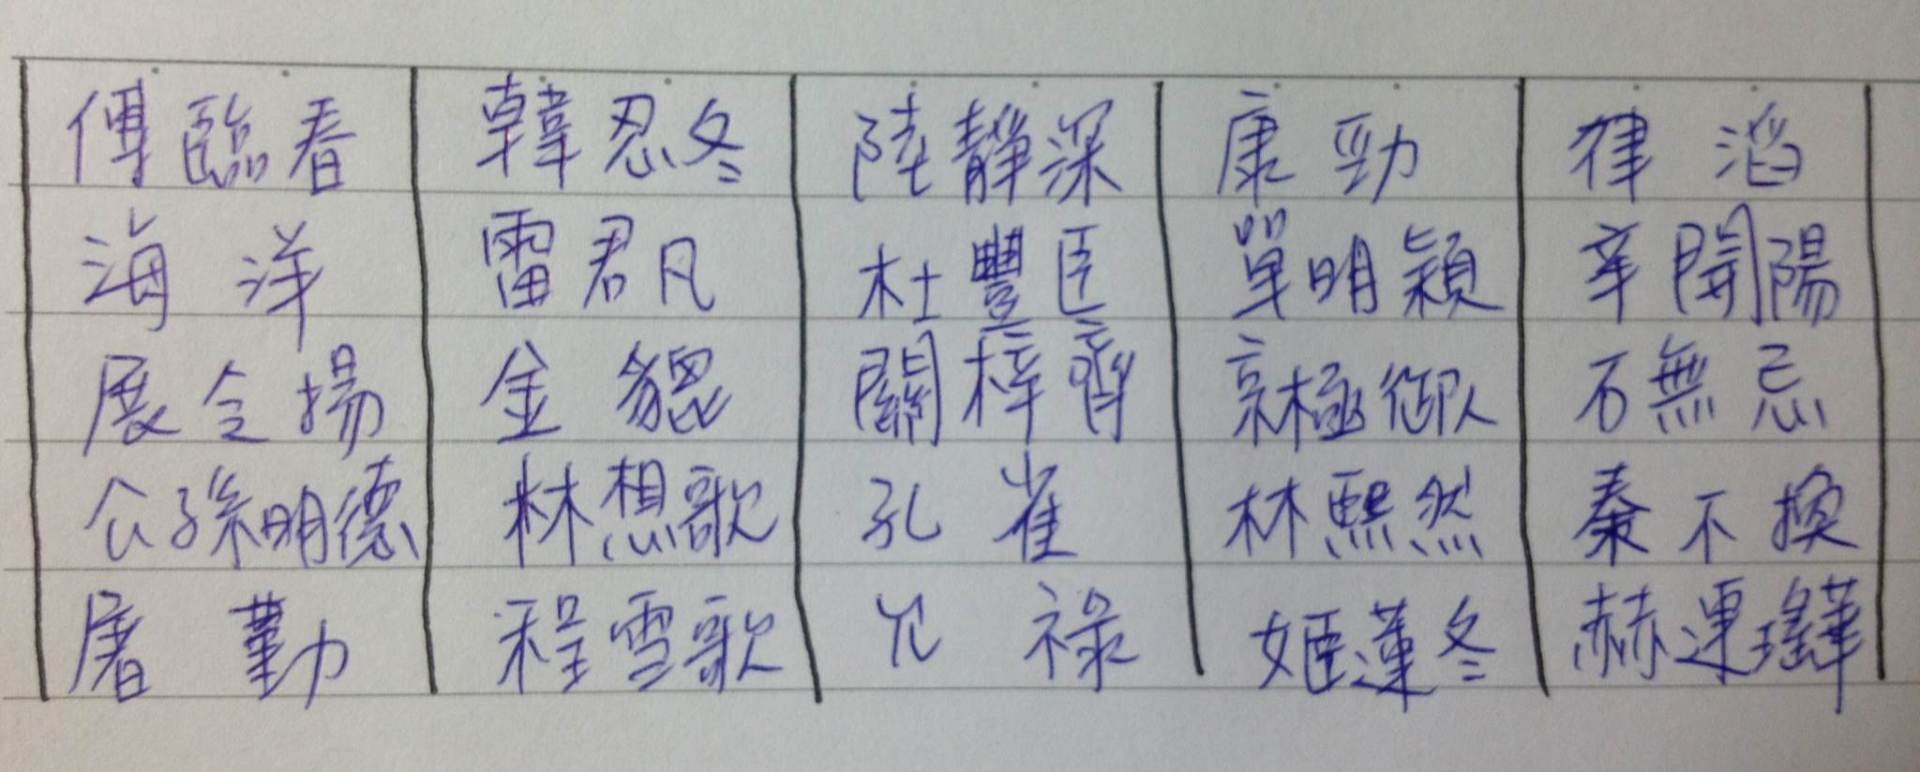 傅臨春 韓忍冬 陸靜深 康勁 律滔
海洋 雷君凡 杜豐臣 單明穎 辛開陽
展令揚 金貔 關梓齊 京極御人 石無忌
公孫明德 林想歌 孔雀 林熙然 秦不換
屠勤 程雪歌 允祿 姬蓮冬 赫連瑤華